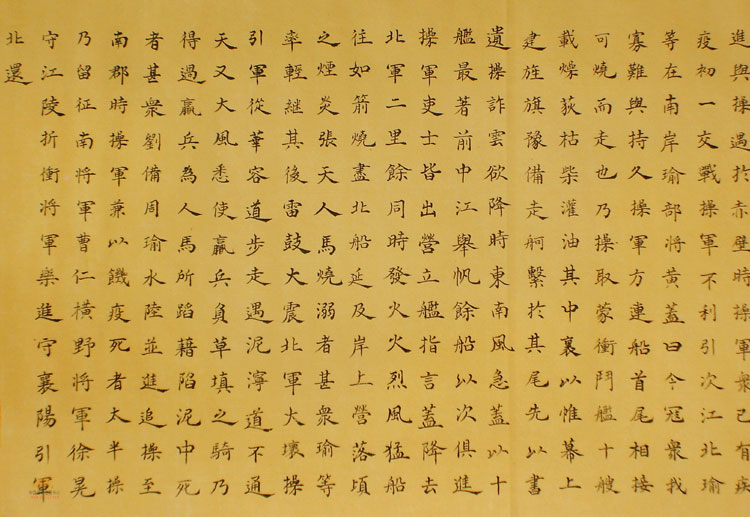 進與操遇於赤壁時操軍眾已有疾
疫初一交戰操軍不利引次江北瑜
等在南岸瑜部將黃蓋曰今冠眾我
寡難與持久操軍方連船首尾相接
可燒而走也乃操取蒙衝鬥艦十艘
載燥荻枯柴灌油其中裹以惟幕上
建旌旗豫備走舸繫於其尾先以書
遺操詐雲欲降時東南風急蓋以十
艦最著前中江舉帆餘船以次俱進
操軍吏士皆出營立艦指言蓋降去
北軍二里餘同時發火火烈風猛船
往如箭燒盡北船延及岸上營落頃
之煙炎張天人馬燒溺者甚眾瑜等
率輕繼其後雷鼓大震北軍大壞操
引軍從華容道步走遇泥濘道不通
天又大風悉使羸兵負草填之騎乃
得過羸兵為人馬所蹈藉陷泥中死
者甚眾劉備周瑜水陸並進追操至
南郡時操軍兼以饑疫死者太半操
乃留征南將軍曹仁橫野將軍徐晃
守江陵折衝將軍樂進守襄陽引軍
北還